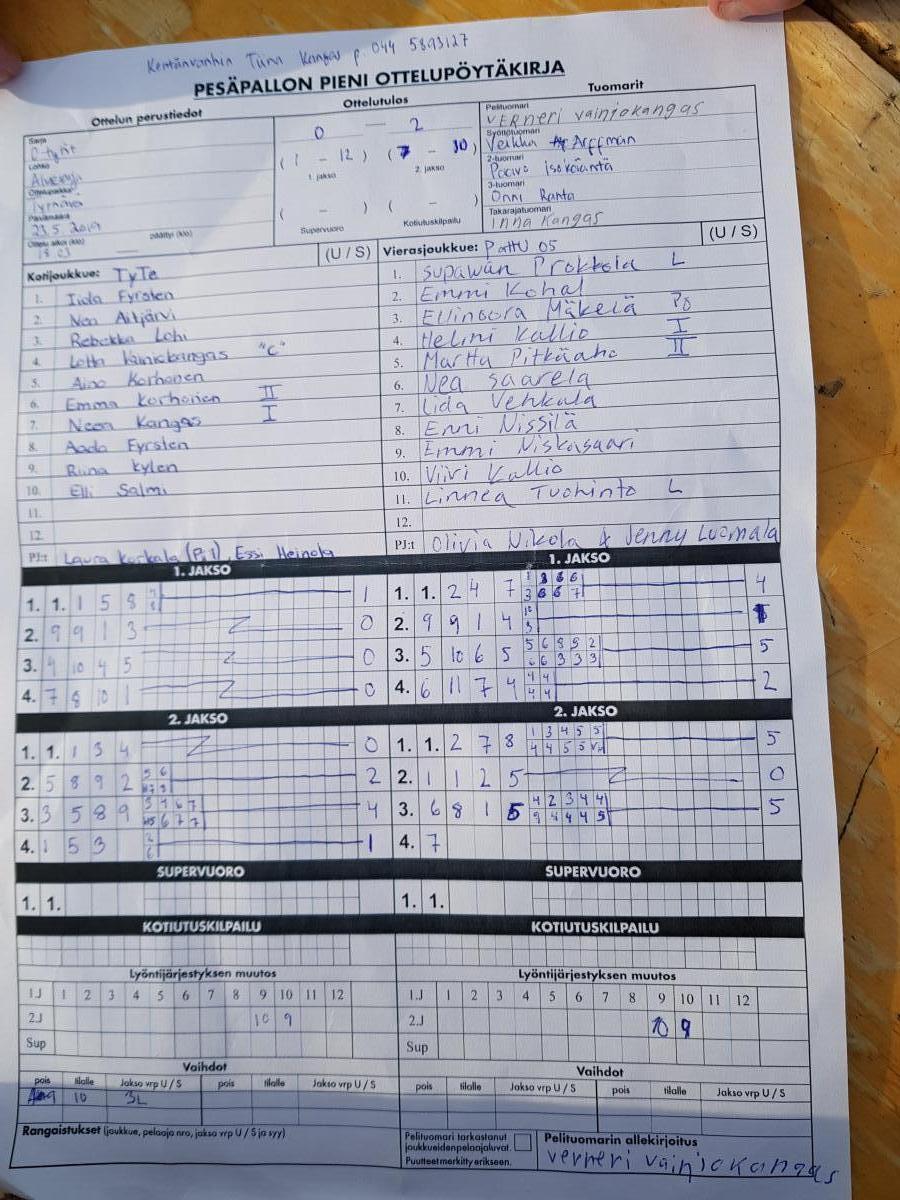 Kentänvanhin Tiina Kangas p. 044 5893127
PESÄPALLON PIENI OTTELUPÖYTÄKIRJA
Ottelun perustiedot
Ottelutulos
Tuomarit
Sarja
Lohko
Ottelupaikka
Tyrnävä
Päivämäärä
23.5.2019
Ottelu alkoi (klo) päättyi (klo)
18.03
0 — 2
(1 - 12) (7 - 10)
1. jakso 2. jakso
( - ) ( - )
Supervuoro Kotiutuskilpailu
Pelituomari
VERNERI vainiokangas
Syöttötuomari
Veikka Arffman
2-tuomari
Paavo Isokääntä
3-tuomari
Onni Ranta
Takarajatuomari
Inna Kangas
Kotijoukkue: TyTe (U / S)
1. Iida Fyrsten
2. Nea Aitjärvi
3. Rebekka Lohi
4. Lotta Vainiokangas "C"
5. Aino Korhonen
6. Emma Korhonen II
7. Neea Kangas I
8. Aada Fyrsten
9. Riina Kylen
10. Elli Salmi
11.
12.
PJ:t Laura Karkala (PJ1), Essi Heinola
Vierasjoukkue: PattU 05 (U / S)
1. Supawan Prokkola L
2. Emmi Kohal
3. Ellinoora Mäkelä
4. Helmi Kallio I
5. Martta Pitkäaho II
6. Nea Saarela
7. Iida Vehkala
8. Enni Nissilä
9. Emmi Niskasaari
10. Viivi Kallio
11. Linnea Tuohinto L
12.
PJ:t Olivia Nikola & Jenny Luomala
1. JAKSO
1. 1. 1 5 8 1
2. 9 9 1 3 0
3. 9 10 4 5 0
4. 7 8 10 1 0
2. JAKSO
1. 1. 1 3 4 0
2. 5 8 9 2 2
3. 3 5 8 9 4
4. 1 5 3 1
SUPERVUORO
1. 1.
KOTIUTUSKILPAILU
1. JAKSO
1. 1. 2 4 7 4
2. 9 9 1 4
3. 5 10 6 5 5
4. 6 11 7 4 2
2. JAKSO
1. 1. 2 7 8 5
2. 1 1 2 5 0
3. 6 8 1 5 5
4. 7
SUPERVUORO
1. 1.
KOTIUTUSKILPAILU
Lyöntijärjestyksen muutos
1.J 1 2 3 4 5 6 7 8 9 10 11 12
2.J 10 9
Sup
Vaihdot
pois tilalle Jakso vrp U / S pois tilalle Jakso vrp U / S
10 3L
Lyöntijärjestyksen muutos
1.J 1 2 3 4 5 6 7 8 9 10 11 12
2.J 10 9
Sup
Vaihdot
pois tilalle Jakso vrp U / S pois tilalle Jakso vrp U / S
Rangaistukset (joukkue, pelaaja nro, jakso vrp U / S ja syy)
Pelituomari tarkastanut
joukkueidenpelaajaluvat.
Puutteet merkitty erikseen.
Pelituomarin allekirjoitus
verneri vainiokangas